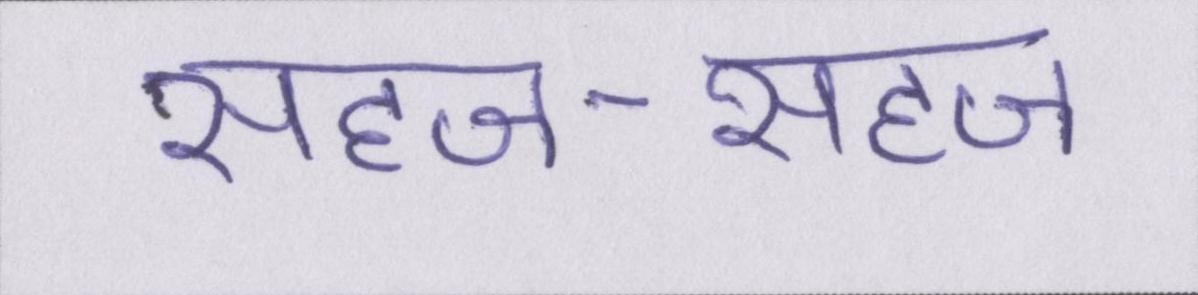 सहज-सहज